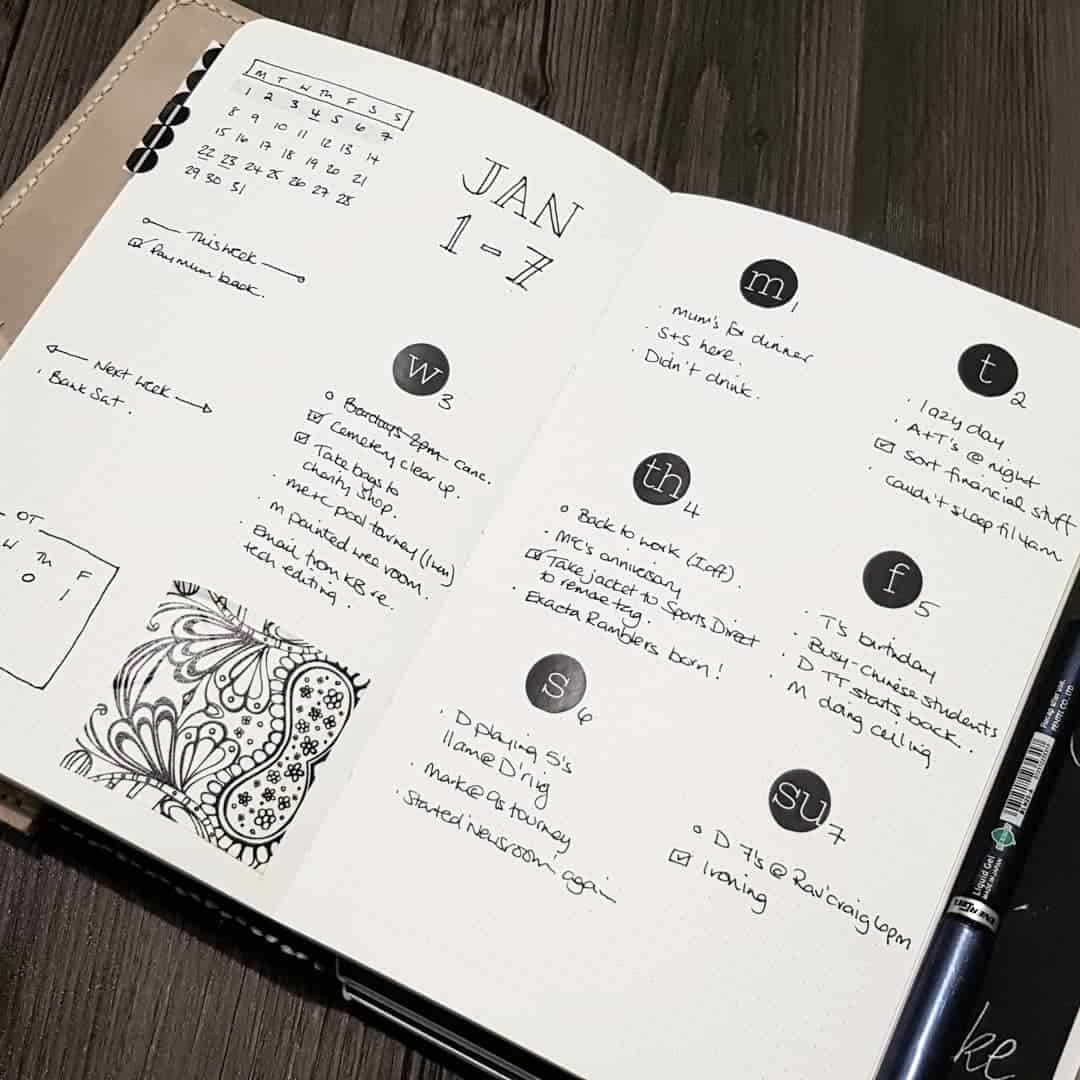 M T W Th F S S
1 2 3 4 5 6 7
8 9 10 11 12 13 14
15 16 17 18 19 20 21
22 23 24 25 26 27 28
29 30 31
JAN
1-7
This week
Pay mum back.
Next week
Bank Sat.
OT
W Th F
0 1
W 3
Barclays 2pm canc.
Cemetery clear up.
Take bags to
charity shop.
M+C pool tourney (1 win)
M painted wee room.
Email from KB re.
tech editing.
m 1
Mum's for dinner
S+S here.
Didn't drink.
t 2
lazy day
A+T's @ night
sort financial stuff
couldn't sleep til 4am
th 4
Back to work (I off).
M+C's anniversary
Take jacket to Sports Direct
to remove tag.
Exacta Ramblers born!
f 5
T's birthday
Busy - chinese students
D TT starts back.
M doing ceiling
S 6
D playing 5's
11am @ D'ring
Mark @ 9s tourney
Started Newsroom again
su 7
D 7's @ Rav'craig 6pm
Ironing
Recap after use.
PENTEL CO., LTD.
Liquid Gel
MADE IN JAPAN
ENERGEL
ke